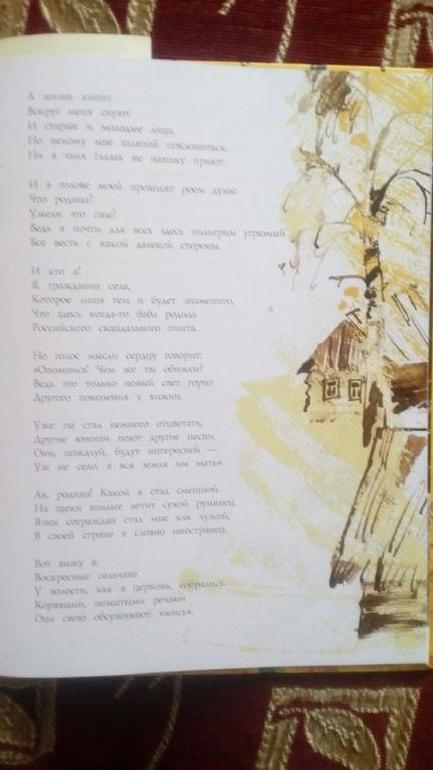 А жизнь кипит.
Вокруг меня снуют
И старые и молодые лица.
Но некому мне шляпой поклониться,
Ни в чьих глазах не нахожу приют.
И в голове моей проходят роем думы:
Что родина?
Ужели это сны?
Ведь я почти для всех здесь пилигрим угрюмый
Бог весть с какой далекой стороны.
И это я!
Я, гражданин села,
Которое лишь тем и будет знаменито,
Что здесь когда-то баба родила
Российского скандального пиита.
Но голос мысли сердцу говорит:
«Опомнись! Чем же ты обижен?
Ведь это только новый свет горит
Другого поколения у хижин.
Уже ты стал немного отцветать,
Другие юноши поют другие песни.
Они, пожалуй, будут интересней —
Уж не село, а вся земля им мать».
Ах, родина! Какой я стал смешной.
На щеки впалые летит сухой румянец.
Язык сограждан стал мне как чужой,
В своей стране я словно иностранец.
Вот вижу я:
Воскресные сельчане
У волости, как в церковь, собрались.
Корявыми, немытыми речами
Они свою обсуживают «жись».